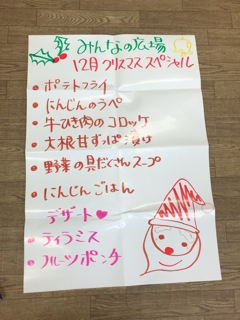 みんなの広場
12月クリスマススペシャル
• ポテトフライ
• にんじんのラペ
• 牛ひき肉のコロッケ
• 大根甘ずっぱ漬け
• 野菜の具だくさんスープ
• にんじんごはん
デザート♥
• ティラミス
• フルーツポンチ